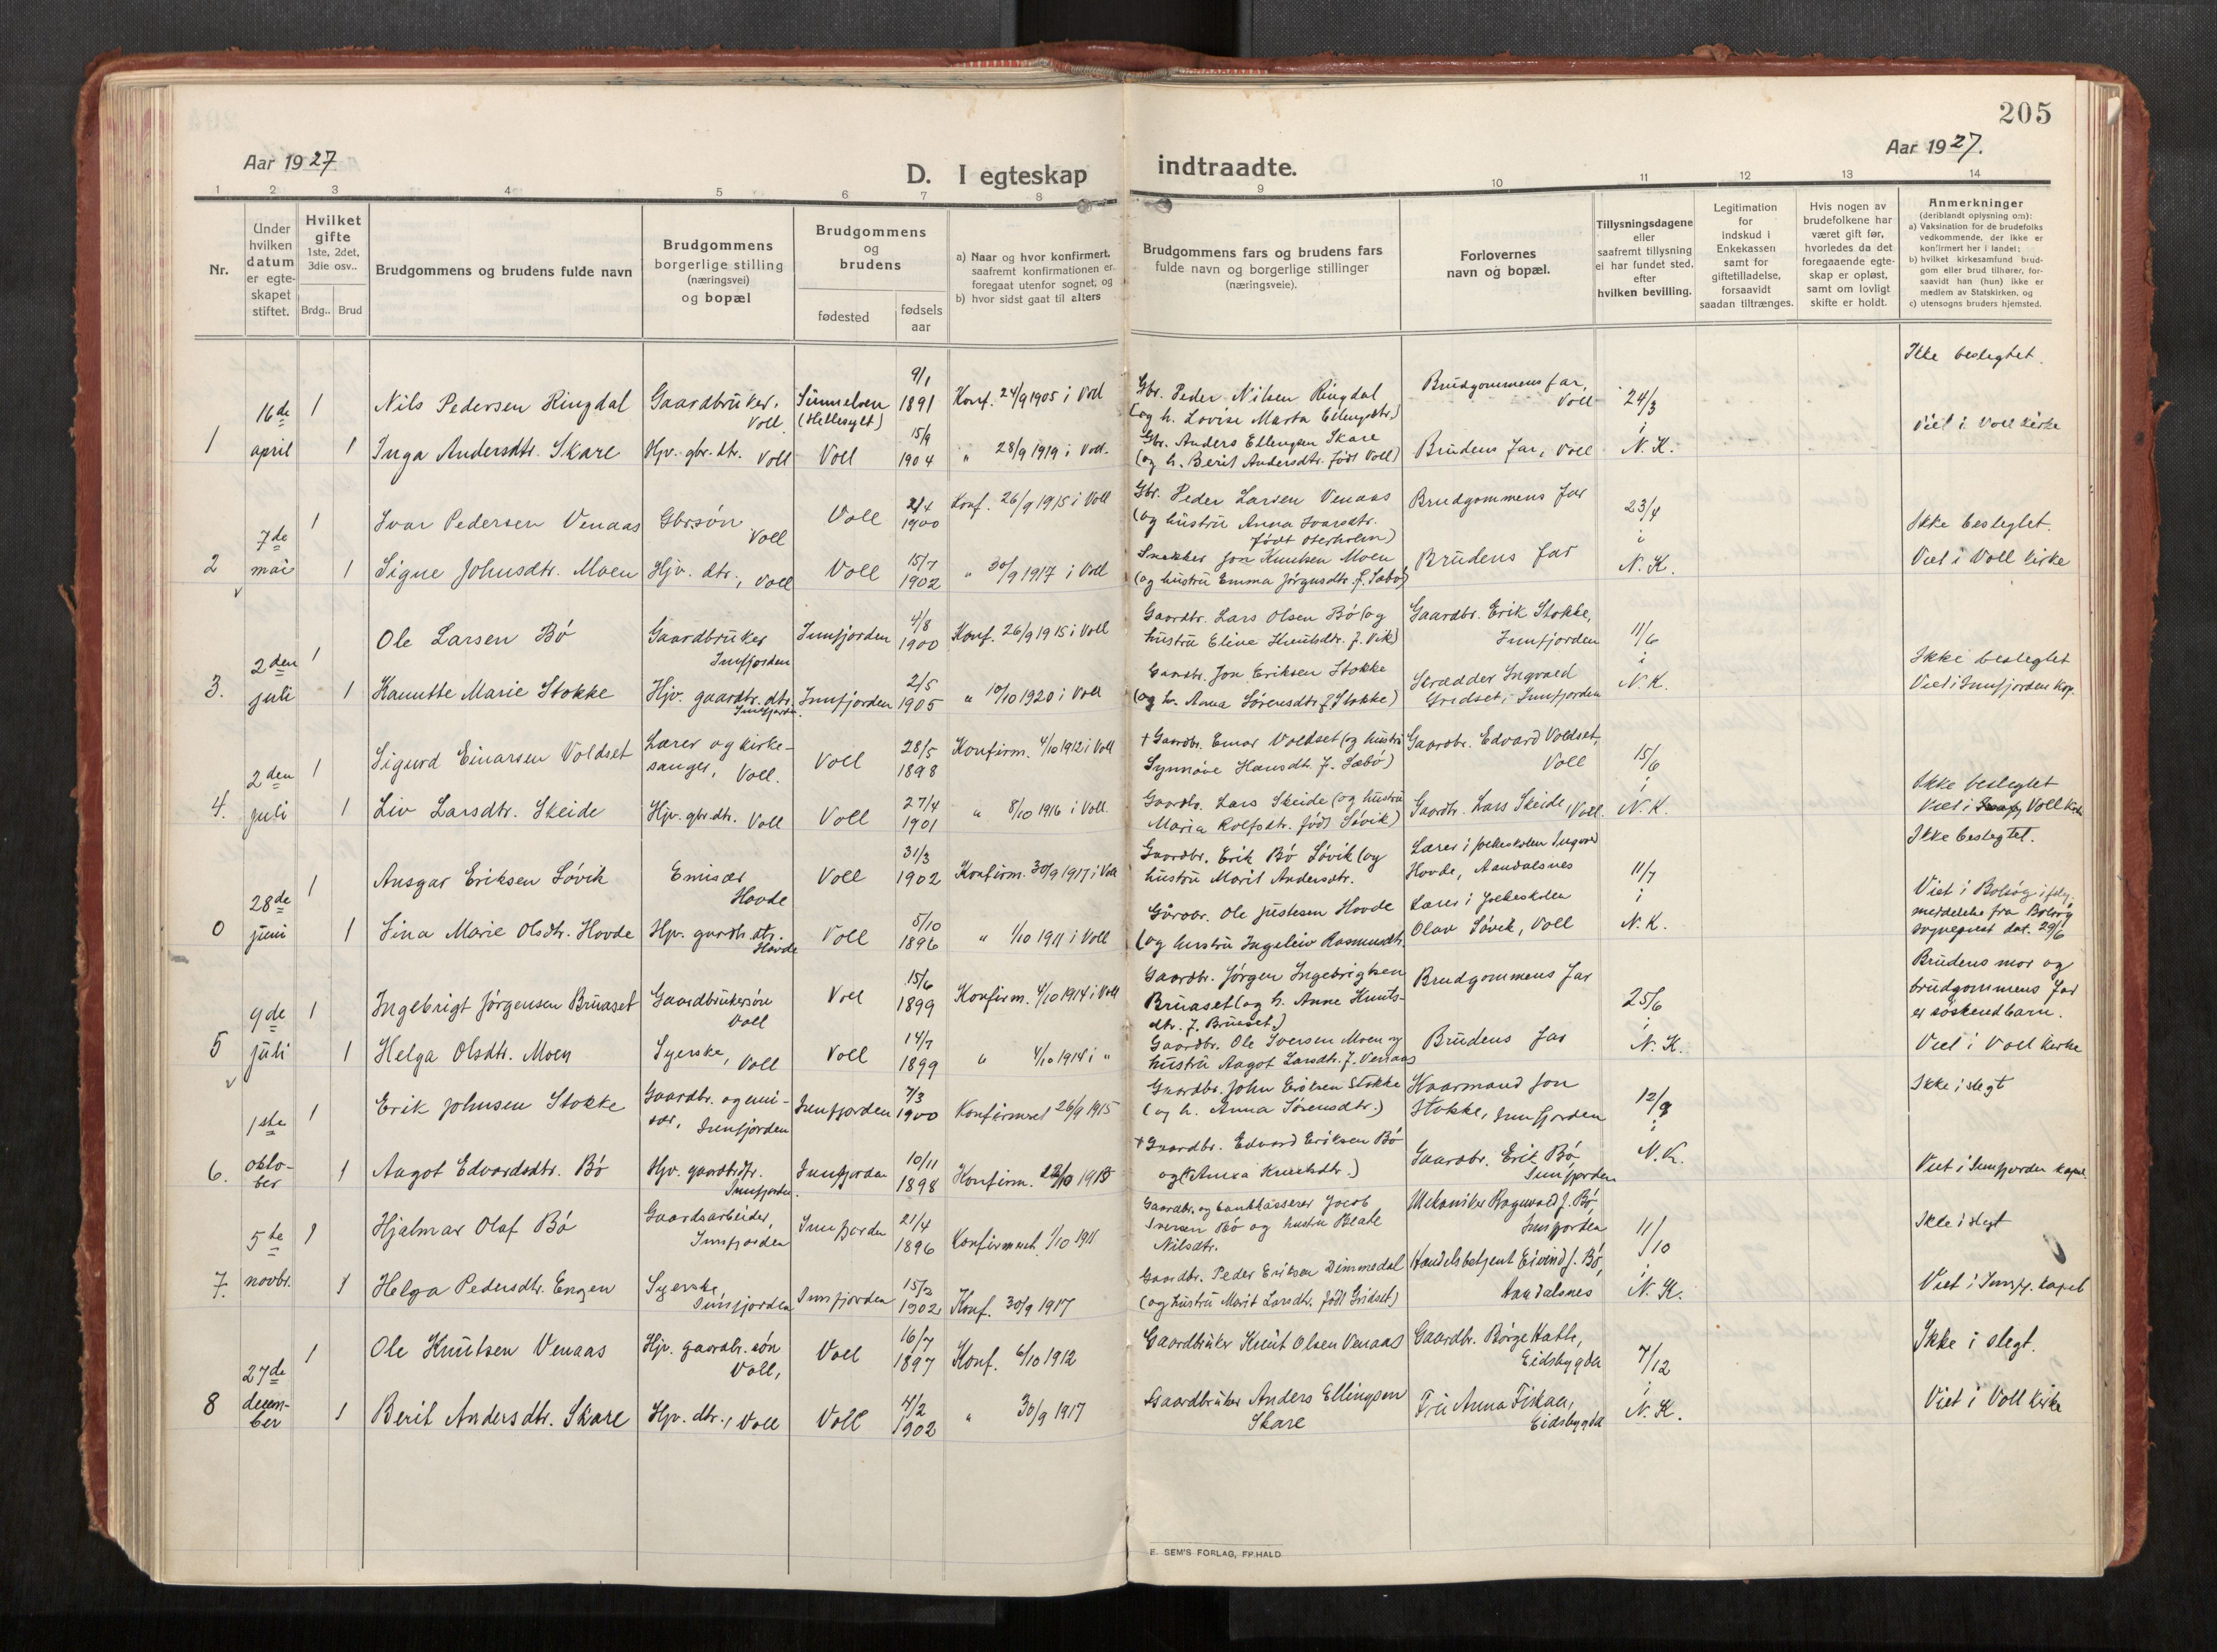 205
Aar 1927
Aar 1927.
D. I egteskap indtraadte.
1 2 3 4 5 6 7 8 9 10 11 12 13 14
Nr.
Under hvilken datum er egteskapet stiftet.
Hvilket gifte 1ste, 2det, 3die osv..
Brdg.. Brud
Brudgommens og brudens fulde navn
Brudgommens borgerlige stilling (næringsvei) og bopæl
Brudgommens og brudens
fødested
fødsels aar
a) Naar og hvor konfirmert, saafremt konfirmationen er foregaat utenfor sognet, og
b) hvor sidst gaat til alters
Brudgommens fars og brudens fars fulde navn og borgerlige stillinger (næringsveie).
Forlovernes navn og bopæl.
Tillysningsdagene eller saafremt tillysning ei har fundet sted, efter hvilken bevilling.
Legitimation for indskud i Enkekassen samt for giftetilladelse, forsaavidt saadan tiltrænges.
Hvis nogen av brudefolkene har været gift før, hvorledes da det foregaaende egteskap er opløst, samt om lovligt skifte er holdt.
Anmerkninger (deriblandt oplysning om):
a) Vaksination for de brudefolks vedkommende, der ikke er konfirmert her i landet;
b) hvilket kirkesamfund brudgom eller brud tilhører, forsaavidt han (hun) ikke er medlem av Statskirken, og
c) utensogns bruders hjemsted.
1 16de april
1 Nils Pedersen Ringdal Gaardbruker. Voll. Sunnelven (Hellesylt) 9/1 1891 Konf. 24/9 1905 i Voll Gbr. Peder Nilsen Ringdal (og h. Lovise Marta Ellingsdtr.) Brudgommens far, Voll 24/3 i N.K. Ikke beslegtet.
1 Inga Andersdtr. Skare Hjv. gbr. dtr. Voll Voll 15/9 1904 " 28/9 1919 i Voll. Gbr. Anders Ellingsen Skare (og h. Berit Andersdtr. født Voll) Brudens far, Voll Viet i Voll kirke
2 7de mai
1 Ivar Pedersen Venaas Gbr.søn Voll Voll 2/4 1900 Konf. 26/9 1915 i Voll Gbr. Peder Larsen Venaas (og hustru Anna Ivarsdtr. født Oterholm) Brudgommens far 23/4 i N.K. Ikke beslegtet.
1 Signe Johnsdtr. Moen Hjv. dtr., Voll Voll 15/7 1902 " 30/9 1917 i Voll Snekker Jon Knutsen Moen (og hustru Emma Jørgensdtr. f. Sæbø) Brudens far Viet i Voll kirke
3. 2den juli
1 Ole Larsen Bø Gaardbruker Innfjorden Innfjorden 4/8 1900 Konf. 26/9 1915 i Voll Gaardbr. Lars Olsen Bø (og hustru Eline Knutsdtr. f. Vik) Gaardbr. Erik Stokke, Innfjorden 11/6 i N.K. Ikke beslegtet
1 Kanutte Marie Stokke Hjv. gaardbr. dtr. Innfjorden. Innfjorden 2/5 1905 " 10/10 1920 i Voll Gaardbr. Jon Eriksen Stokke (og h. Anna Sørensdtr. f. Stokke) Skrædder Ingvald Gridset, Innfjorden Viet i Innfjorden kap.
4. 2den juli
1 Sigurd Einarsen Voldset Lærer og kirkesanger, Voll. Voll 28/5 1898 Konfirm. 4/10 1912 i Voll + Gaardbr. Einar Voldset (og hustru Synnøve Hansdtr. f. Sæbø) Gaardbr. Edvard Voldset, Voll 15/6 i N.K. Ikke beslegtet
1 Liv Larsdtr. Skeide Hjv. gbr.dtr. Voll Voll 27/4 1901 " 8/10 1916 i Voll. Gaardbr. Lars Skeide (og hustru Maria Rolfsdtr. født Søvik) Gaardbr. Lars Skeide, Voll. Viet i Voll kirke
0 28de juni
1 Ansgar Eriksen Søvik Emisær Hovde Voll 31/3 1902 Konfirm. 30/9 1917 i Voll Gaardbr. Erik Bø Søvik (og hustru Marit Andersdtr. Lærer i folkeskolen Ingvard Hovde, Aandalsnes 11/7 i N.K. Ikke beslegtet.
1 Sina Marie Olsdtr. Hovde Hjv. gardb. dtr. Hovde Voll 5/10 1896 " 1/10 1911 i Voll Gårdbr. Ole Justesen Hovde (og hustru Ingeleiv Rasmusdtr. Lærer i folkeskolen Olav Søvik, Voll Viet i Bolsøy ifølg. meddelelse fra Bolsøy sogneprest dat. 29/6
5 9de juli
1 Ingebrigt Jørgensen Bruaset Gaardbrukersøn Voll Voll 15/6 1899 Konfirm. 4/10 1914 i Voll Gaardbr. Jørgen Ingebrigtsen Bruaset (og h. Anne Knutsdtr. f. Bruaset.) Brudgommens far 25/6 i N.K. Brudens mor og brudgommens far er søskendbarn.
1 Helga Olsdtr. Moen Syerske, Voll Voll 14/7 1899 " 4/10 1914 i " Gaardbr. Ole Iversen Moen og hustru Aagot Larsdtr. f. Venaas Brudens far Viet i Voll kirke
6. 1ste oktober
1 Erik Johnsen Stokke Gaardbr. og emisær, Innfjorden Innfjorden 7/3 1900 Konfirmert 26/9 1915 Gaardbr. John Eriksen Stokke (og h. Anna Sørensdtr.) Kaarmand Jon Stokke, Innfjorden 12/9 i N.K. Ikke i slegt
1 Aagot Edvardsdtr. Bø Hjv. gaardbrdtr. Innfjorden. Innfjorden 10/11 1898 Konfirm. + Gaardbr. Edvard Eriksen Bø og (Anna Knutsdtr.) Gaardbr. Erik Bø Innfjorden Viet i Innfjorden kapel
7. 5te novbr.
1 Hjalmar Olaf Bø Gaardsarbeider, Innfjorden Innfjorden 21/4 1896 Konfirmert 1/10 1911 Gaardbr. og bankkasserer Jacob Iversen Bø og hustru Beate Nilsdtr. Mekaniker Ragnvald J. Bø, Innfjorden 11/10 i N.K. Ikke i slegt
1 Helga Pedersdtr. Engen Syerske, Innfjorden Innfjorden 15/2 1902 Konf. 30/9 1917 Gaardbr. Peder Eriksen Dimmedal (og hustru Marit Larsdtr. født Gridset) Handelsbetjent Eivind J. Bø, Aandalsnes Viet i Innfj. kapel
8 27de december
1 Ole Knutsen Venaas Hjv. gaardbr. søn Voll, Voll 16/7 1897 Konf. 6/10 1912 Gaardbruker Knut Olsen Venaas Gaardbr. Børge Hatle, Eidsbygda 7/12 i N.K. Ikke i slegt.
1 Berit Andersdtr. Skare Hjv. dtr., Voll Voll 4/2 1902 " 30/9 1917 Gaardbruker Anders Ellingsen Skare Frk. Anna Fiskaa, Eidsbygda Viet i Voll kirke
E. SEM'S FORLAG, FR.HALD